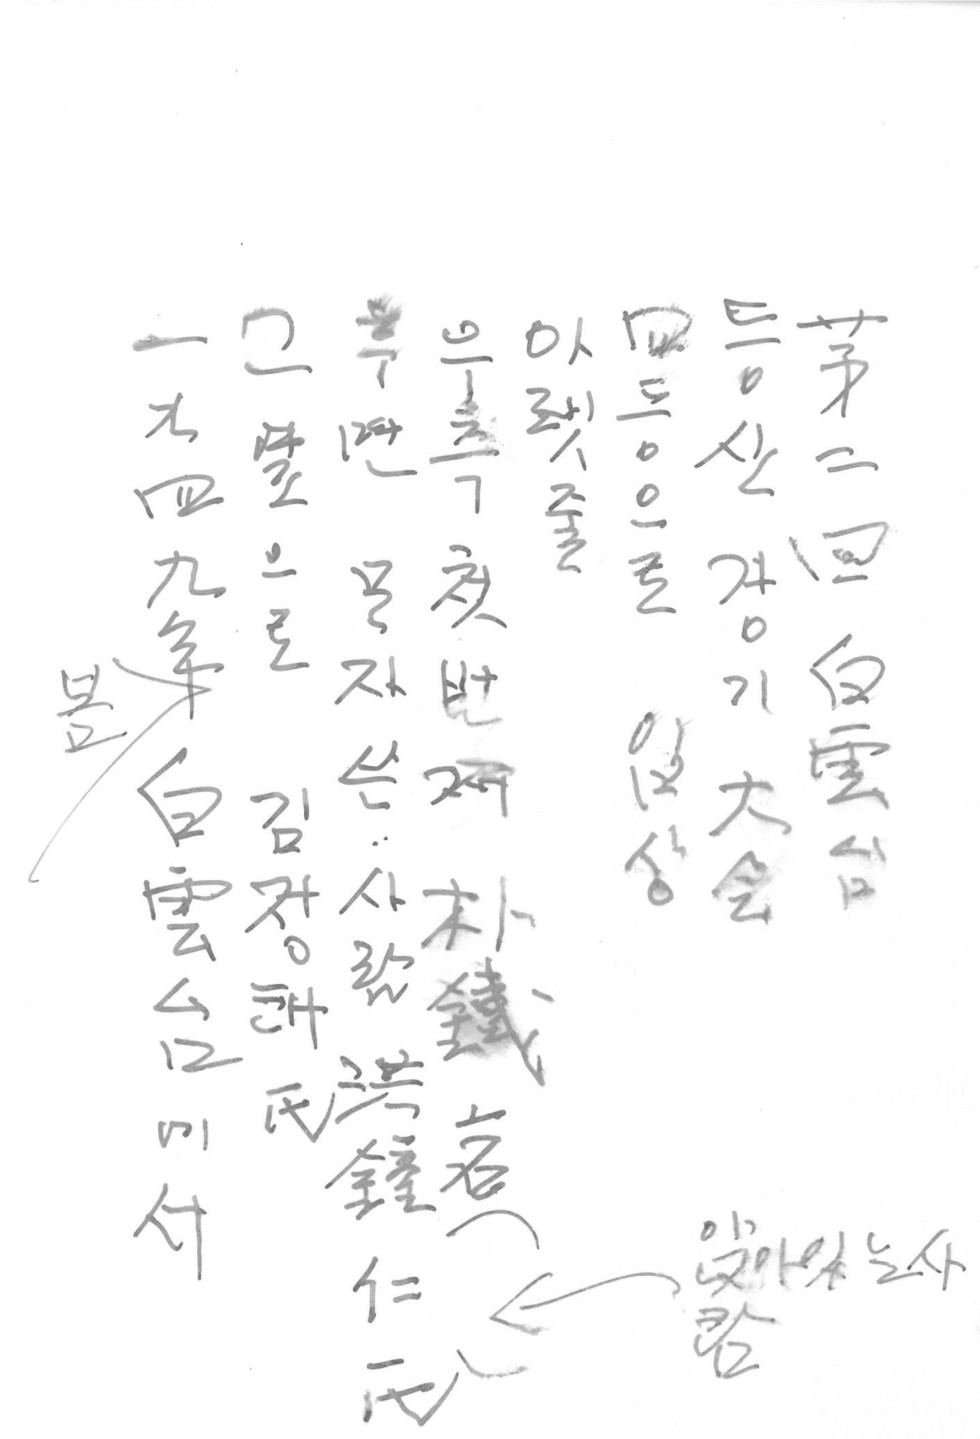 第二回 白雲台
등산 경기 大会
四등으로 입상
아랫줄
우측 첫번째 朴鐵岩
부면 모자 쓴 사람 洪鐘仁 氏
그 옆으로 김정태 氏
一九四九年 白雲台에서
봄
앉아있는사
람